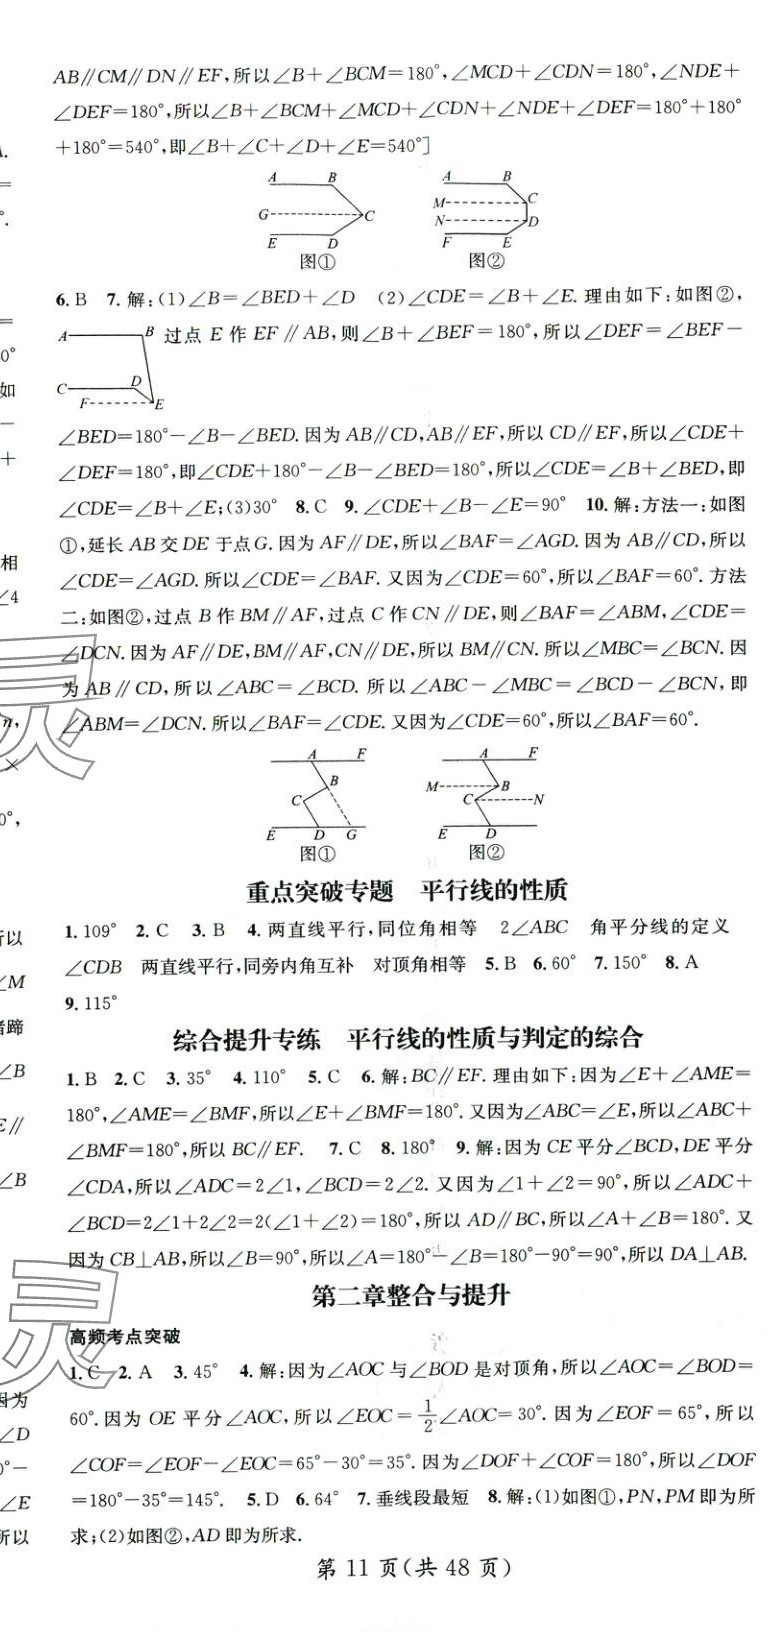 AB∥CM∥DN∥EF,所以∠B+∠BCM=180°,∠MCD+∠CDN=180°,∠NDE+
∠DEF=180°,所以∠B+∠BCM+∠MCD+∠CDN+∠NDE+∠DEF=180°+180°
+180°=540°,即∠B+∠C+∠D+∠E=540°]
A B
G C
E D
图①
A B
M C
N D
F E
图②
6. B 7. 解:(1)∠B=∠BED+∠D (2)∠CDE=∠B+∠E. 理由如下:如图②,
A B
C D
F E
过点 E 作 EF∥AB,则∠B+∠BEF=180°,所以∠DEF=∠BEF-
∠BED=180°-∠B-∠BED. 因为 AB∥CD,AB∥EF,所以 CD∥EF,所以∠CDE+
∠DEF=180°,即∠CDE+180°-∠B-∠BED=180°,所以∠CDE=∠B+∠BED,即
∠CDE=∠B+∠E;(3)30° 8. C 9. ∠CDE+∠B-∠E=90° 10. 解:方法一:如图
①,延长 AB 交 DE 于点 G. 因为 AF∥DE,所以∠BAF=∠AGD. 因为 AB∥CD,所以
∠CDE=∠AGD. 所以∠CDE=∠BAF. 又因为∠CDE=60°,所以∠BAF=60°. 方法
二:如图②,过点 B 作 BM∥AF,过点 C 作 CN∥DE,则∠BAF=∠ABM,∠CDE=
∠DCN. 因为 AF∥DE,BM∥AF,CN∥DE,所以 BM∥CN. 所以∠MBC=∠BCN. 因
为 AB∥CD,所以∠ABC=∠BCD. 所以∠ABC-∠MBC=∠BCD-∠BCN,即
∠ABM=∠DCN. 所以∠BAF=∠CDE. 又因为∠CDE=60°,所以∠BAF=60°.
A F
B
C
E D G
图①
A F
M B
C N
E D
图②
重点突破专题 平行线的性质
1. 109° 2. C 3. B 4. 两直线平行,同位角相等 2∠ABC 角平分线的定义
∠CDB 两直线平行,同旁内角互补 对顶角相等 5. B 6. 60° 7. 150° 8. A
9. 115°
综合提升专练 平行线的性质与判定的综合
1. B 2. C 3. 35° 4. 110° 5. C 6. 解:BC∥EF. 理由如下:因为∠E+∠AME=
180°,∠AME=∠BMF,所以∠E+∠BMF=180°. 又因为∠ABC=∠E,所以∠ABC+
∠BMF=180°,所以 BC∥EF. 7. C 8. 180° 9. 解:因为 CE 平分∠BCD,DE 平分
∠CDA,所以∠ADC=2∠1,∠BCD=2∠2. 又因为∠1+∠2=90°,所以∠ADC+
∠BCD=2∠1+2∠2=2(∠1+∠2)=180°,所以 AD∥BC,所以∠A+∠B=180°. 又
因为 CB⊥AB,所以∠B=90°,所以∠A=180°-∠B=180°-90°=90°,所以 DA⊥AB.
第二章整合与提升
高频考点突破
1. C 2. A 3. 45° 4. 解:因为∠AOC 与∠BOD 是对顶角,所以∠AOC=∠BOD=
60°. 因为 OE 平分∠AOC,所以∠EOC=1/2∠AOC=30°. 因为∠EOF=65°,所以
∠COF=∠EOF-∠EOC=65°-30°=35°. 因为∠DOF+∠COF=180°,所以∠DOF
=180°-35°=145°. 5. D 6. 64° 7. 垂线段最短 8. 解:(1)如图①,PN,PM 即为所
求;(2)如图②,AD 即为所求.
第 11 页(共 48 页)